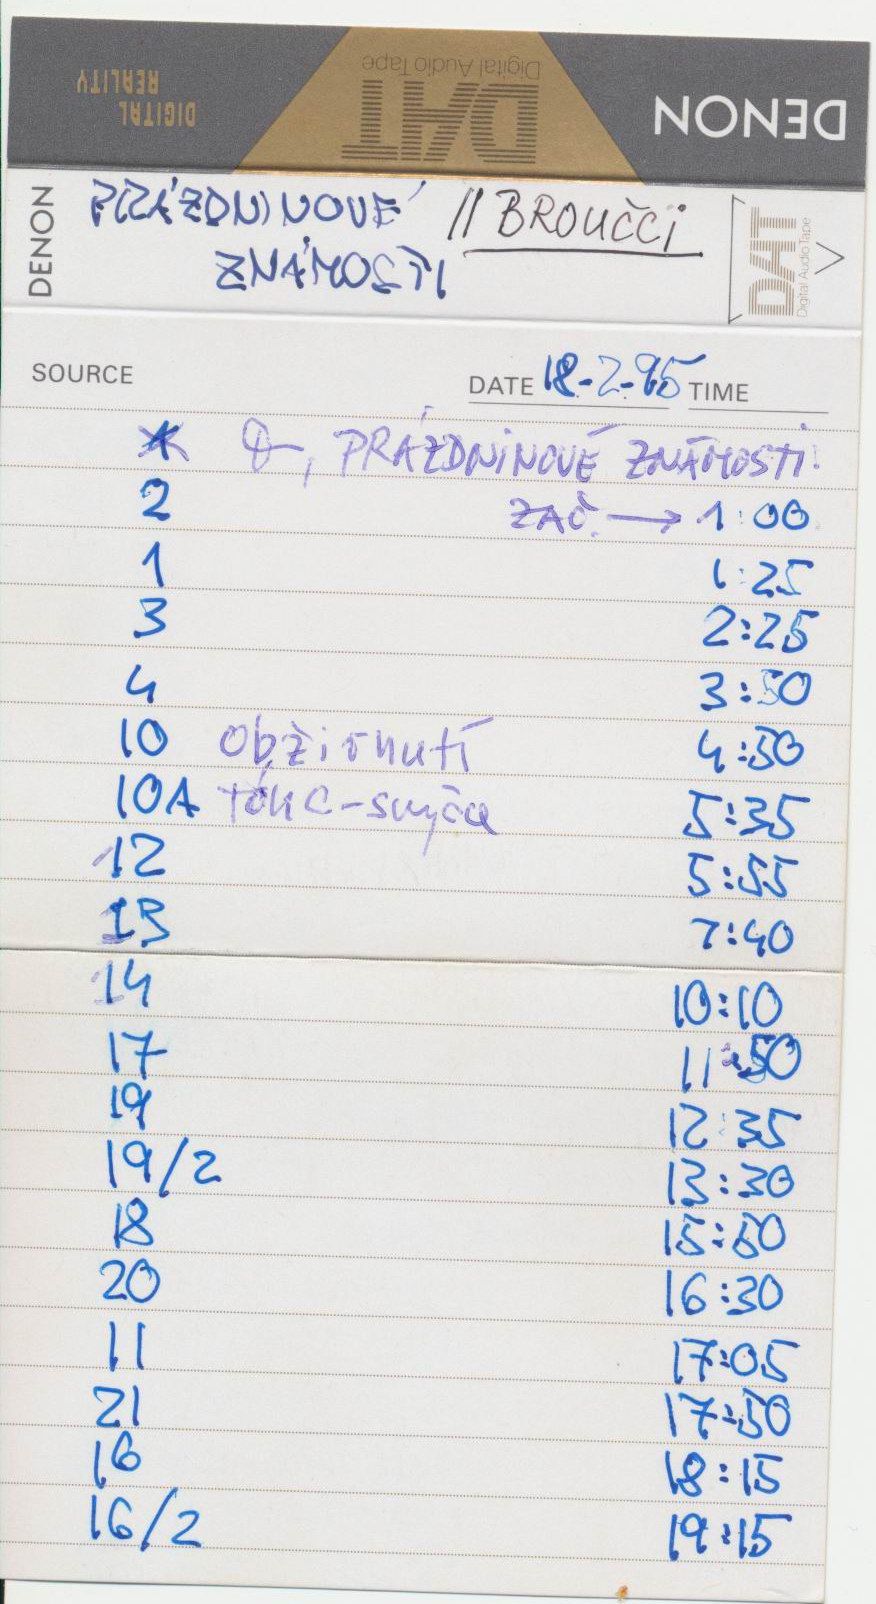 DIGITAL
REALITY
DAT
Digital Audio Tape
DENON
DENON
PRÁZDNINOVÉ
ZNÁMOSTI
// BROUČCI
DAT
Digital Audio Tape
SOURCE
DATE 18-2-95 TIME
, PRÁZDNINOVÉ ZNÁMOSTI
2 ZAČ. → 1:00
1 1:25
3 2:25
4 3:50
10 4:50
10A 5:35
12 5:55
13 7:40
14 10:10
17 11:50
19 12:35
19/2 13:30
18 15:50
20 16:30
11 17:05
21 17:50
16 18:15
16/2 19:15